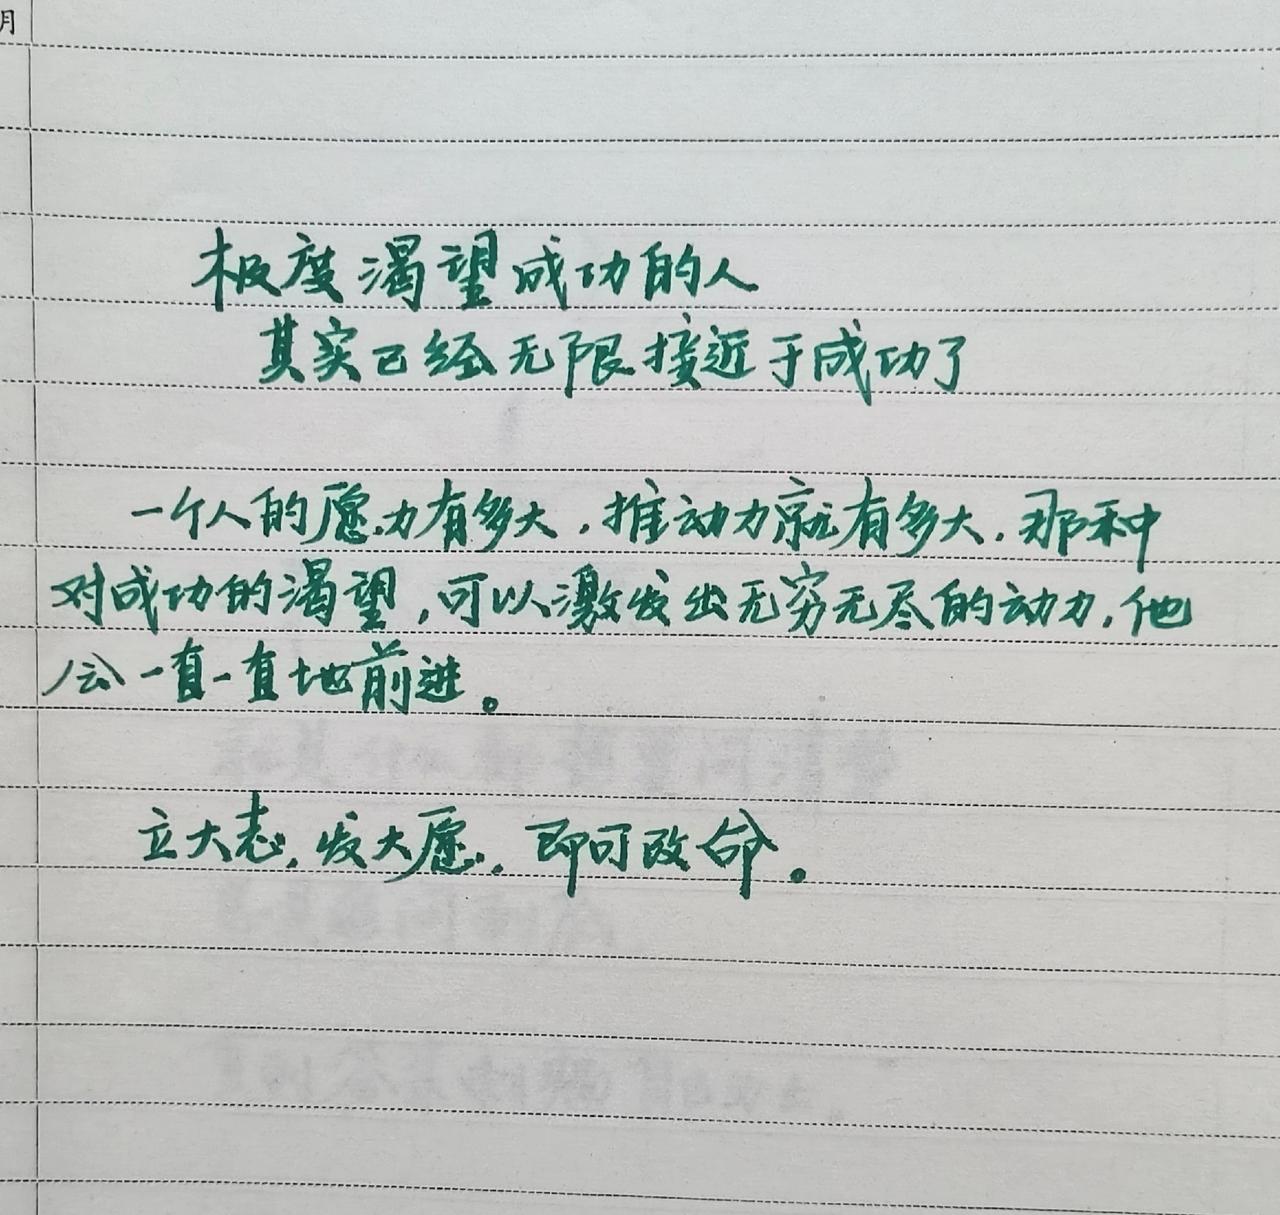 月
极度渴望成功的人
其实已经无限接近于成功了
一个人的愿力有多大，推动力就有多大，那种
对成功的渴望，可以激发出无穷无尽的动力，他
会一直一直地前进。
立大志，发大愿，即可改命。